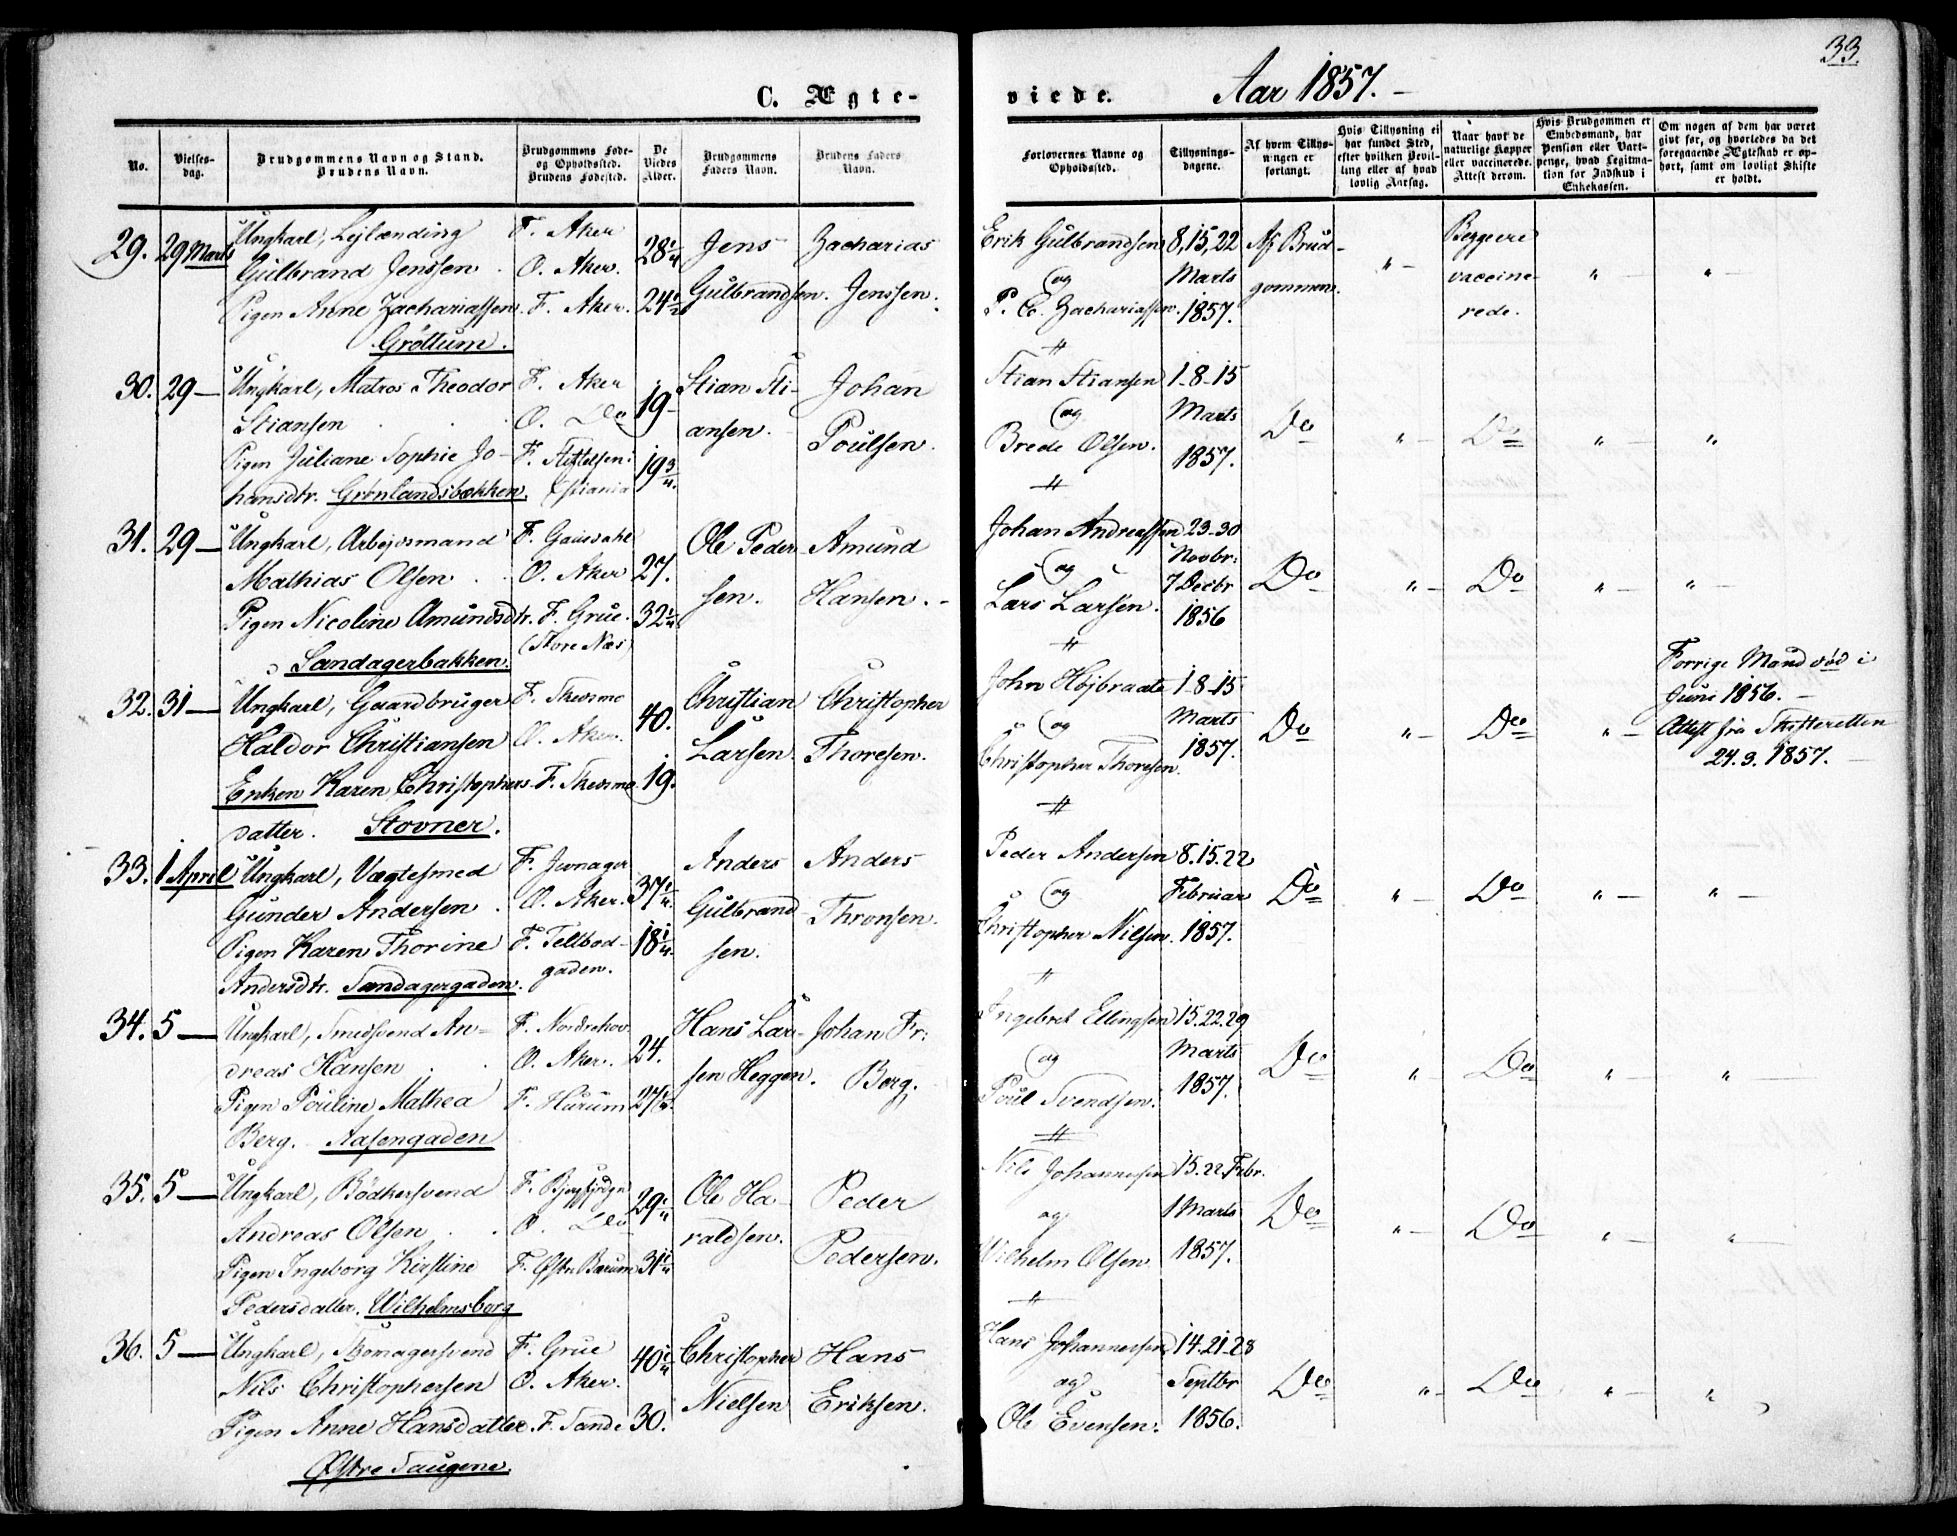 33.
C. Ægte-
viede.
Aar 1857.
No.
Vielses-
dag.
Brudgommens Navn og Stand.
Brudens Navn.
Brudgommens Føde-
og Opholdssted.
Brudens Fødested.
De
Viedes
Alder.
Brudgommens
Faders Navn.
Brudens Faders
Navn.
Forlovernes Navne og
Opholdssted.
Tillysnings-
dagene.
Af hvem Tillys-
ningen er
forlangt.
Hvis Tillysning ei
har fundet Sted,
efter hvilken Bevil-
ling eller af hvad
lovlig Aarsag.
Naar havt de
naturlige Kopper
eller vaccinerede.
Attest derom.
Hvis Brudgommen er
Embedsmand, har
Pension eller Vart-
penge, hvad Legitima-
tion for Indskud i
Enkekassen.
Om nogen af dem har været
givt før, og hvorledes da det
foregaaende Ægteskab er op-
hørt, samt om lovligt Skifte
er holdt.
29. 29 Marts Ungkarl, Lejlænding F. Aker 28 1/4 Jens Zacharias Erik Gulbrandsen 8, 15, 22 Af Brud- " Begge ere " "
Gulbrand Jenssen. O. Aker. og Marts gommen. vaccine-
Pigen Anne Zachariassen. F. Aker. 24 1/2 Gulbrandsen. Jenssen. P. E. Zachariassen. 1857. rede.
Gröttum.
30. 29 — Ungkarl, Matros Theodor F. Aker 19 Stian Sti- Johan Stian Stiansen 1-8-15
Stiansen O. Do og Marts Do " Do " "
Pigen Juliane Sophie Jo- F. Stiftelsen: 19 3/4. ansen. Poulsen. Brede Olsen. 1857.
hansdtr. Grønlandsbækken. Chstiania
31. 29 — Ungkarl, Arbejdsmand F. Gausdahl Ole Peder- Amund Johan Andreassen 23-30
Mathias Olsen. O. Aker 27. og Novbr: Do " Do " "
Pigen Nicoline Amundsdtr. F. Grue. 32 1/4 sen. Hansen. Lars Larsen. 7 Decbr
(Store Næs) 1856
Sandagerbakken.
32. 31 — Ungkarl, Gaardbruger F. Skedsmo 40. Christian Christopher John Højbraate 1-8-15 Forrige Mand død i
Haldor Christiansen O. Aker. og Marts Do " Do " Juni 1856.
Enken Karen Christophers- F. Skedsmo 19. Larsen. Thoresen. Christopher Thoresen. 1857. Attest fra Skifteretten
datter. Stovner. 24. 3. 1857.
33. 1 April Ungkarl, Vægtesmed F. Jevnager 37 1/4. Anders Anders Peder Andersen 8. 15. 22
Gunder Andersen. O. Aker. og Februar Do " Do " "
Pigen Karen Thorine F. Teltbod- 18 1/4. Gulbrand- Thronsen. Christopher Nilsen. 1857.
Andersdtr. Sandagergaden. gaden. sen.
34. 5 — Ungkarl, Smedsvend An- F. Nordrehov 24. Hans Lar- Johan Fr: Ingebret Ellingsen 15. 22. 29
dreas Hansen O. Aker. og Marts Do " Do " "
Pigen Pouline Mathea F. Hurum 27 1/4. sen Heggen. Berg. Poul Svendsen. 1857.
Berg. Aasengaden
35. 5 — Ungkarl, Bödkersvend F. 29 1/4 Ole Ha- Peder Nils Johannesen 15. 22. Febr.
Andreas Olsen. O. Do og 1 Marts Do " Do " "
Pigen Ingeborg Kirstine F. Østre Bærum 31 1/4 raldsen. Pedersen. Wilhelm Olsen. 1857.
Pedersdatter. Wilhelmsborg
36. 5 — Ungkarl, Skomagersvend F. Grue 40 1/4 Christopher Hans Hans Johannessen 14. 21. 28
Nils Christophersen O. Aker. og Septbr Do " Do " "
Pigen Anne Hansdatter. F. Sande 30. Nielsen Eriksen. Ole Evensen. 1856.
Østre Saugene.